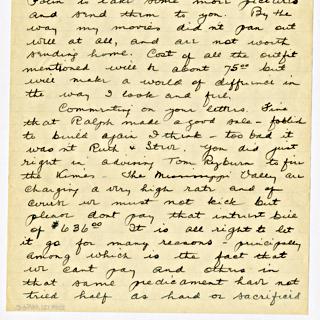 to take some more pictures
and send them to you. By the
way my movies didn't pan out
well at all, and are not worth
sending home. Cost of all the outfit
mentioned will be about 75⁰⁰ but
will make a world of difference in
the way I look and feel.
Commenting on your letters. Fine
that Ralph made a good sale - foolish
to build again I think - too bad it
wasn't Rush & Stew. You did just
right in advising Tom Ryburn to fire
the Kimes - The Mississippi Valley are
charging a very high rate and of
course we must not kick but
please dont pay that interest bill
of $636⁰⁰ It is all right to let
it go for many reasons - principally
among which is the fact that
we cant pay and others in
that same predicament have not
tried half as hard or sacrificed